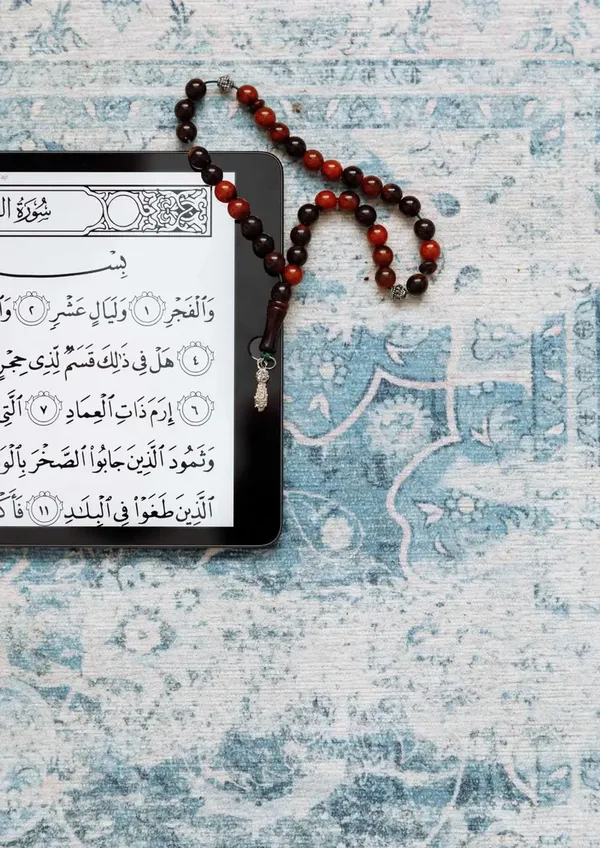 سُورَةُ ال
بِسْـ
وَٱلْفَجْرِ ١ وَلَيَالٍ عَشْرٖ ٢ وَٱ
٤ هَلْ فِي ذَٰلِكَ قَسَمٞ لِّذِي حِجْرٍ
٦ إِرَمَ ذَاتِ ٱلْعِمَادِ ٧ ٱلَّتِي
وَثَمُودَ ٱلَّذِينَ جَابُوا۟ ٱلصَّخْرَ بِٱلْوَ
ٱلَّذِينَ طَغَوْا۟ فِي ٱلْبِلَٰدِ ١١ فَأَكْ